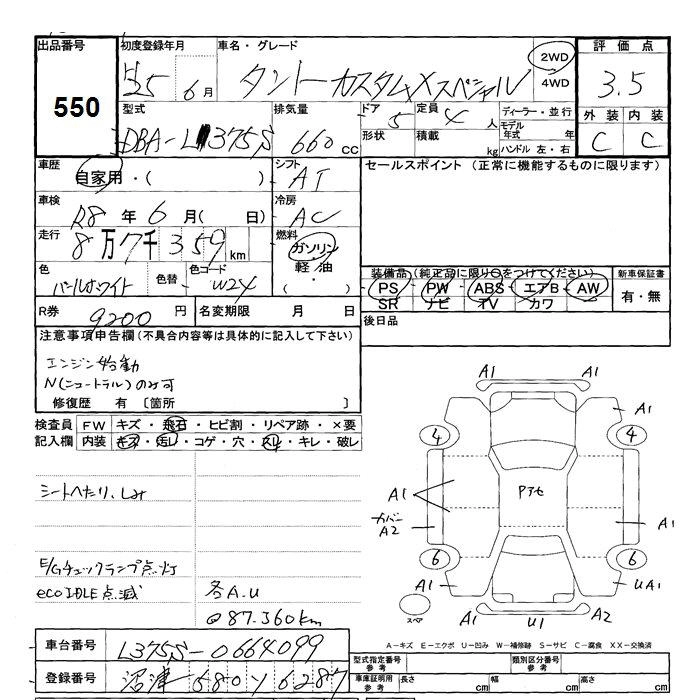 出品番号 初度登録年月 車名・グレード 評価点
550
H25 6月 タントカスタムXスペシャル 2WD 4WD 3.5
型式 排気量 ドア 定員 ディーラー・並行 外装 内装
DBA-L375S 660cc 5 4人 モデル年式 年 C C
形状 積載 kg ハンドル 左・右
車歴 シフト セールスポイント (正常に機能するものに限ります)
自家用・( ) AT
車検 冷房
R8年 6月( 日) AC
走行 燃料
8万7千359km ガソリン
軽油
・( )
色 色替 色コード 装備品(純正品に限り○をつけてください) 新車保証書
パールホワイト W24 PS PW ABS エアB AW 有・無
SR ナビ TV カワ
R券 9200円 名変期限 月 日 後日品
注意事項申告欄(不具合内容等は具体的に記入して下さい)
エンジン始動
N(ニュートラル)のみ可
修復歴 有〔箇所 〕
検査員 FW キズ・飛石・ヒビ割・リペア跡・×要
記入欄 内装 キズ・汚レ・コゲ・穴・スレ・キレ・破レ
シートヘたり、しみ
E/Gチェックランプ点灯
ecoIDLE点滅 各A.U
@87.360km
A1 A1
A1 A1
4 4
Pアセ
A1
カバー A2 A1
6 6
A1 UA1
スペア U1 A2
A-キズ E-エクボ U-凹み W-補修跡 S-サビ C-腐食 XX-交換済
車台番号 L375S-0664099 型式指定番号 参考 類別区分番号 参考
登録番号 沼津 580 ソ 6287 車庫証明用 参考 長さ cm 幅 cm 高さ cm